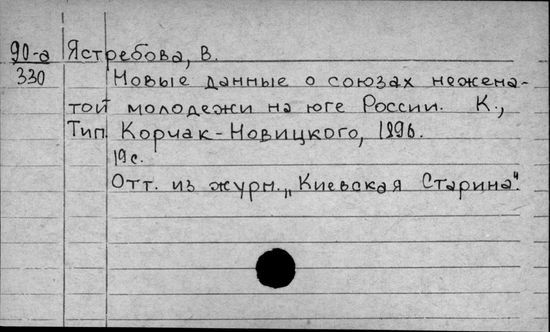 90-а Ястребова, В.
330 Новые данные о союзах нежена-
той молодежи на юге России. К.,
Тип. Корчак-Новицкого, 1896.
19 с.
Отт. из журн. „Киевская Старина".